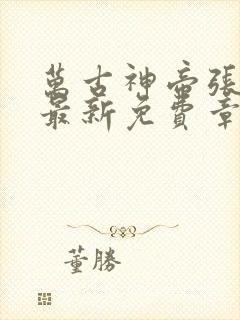 萬古神帝張
最新免費章
董勝